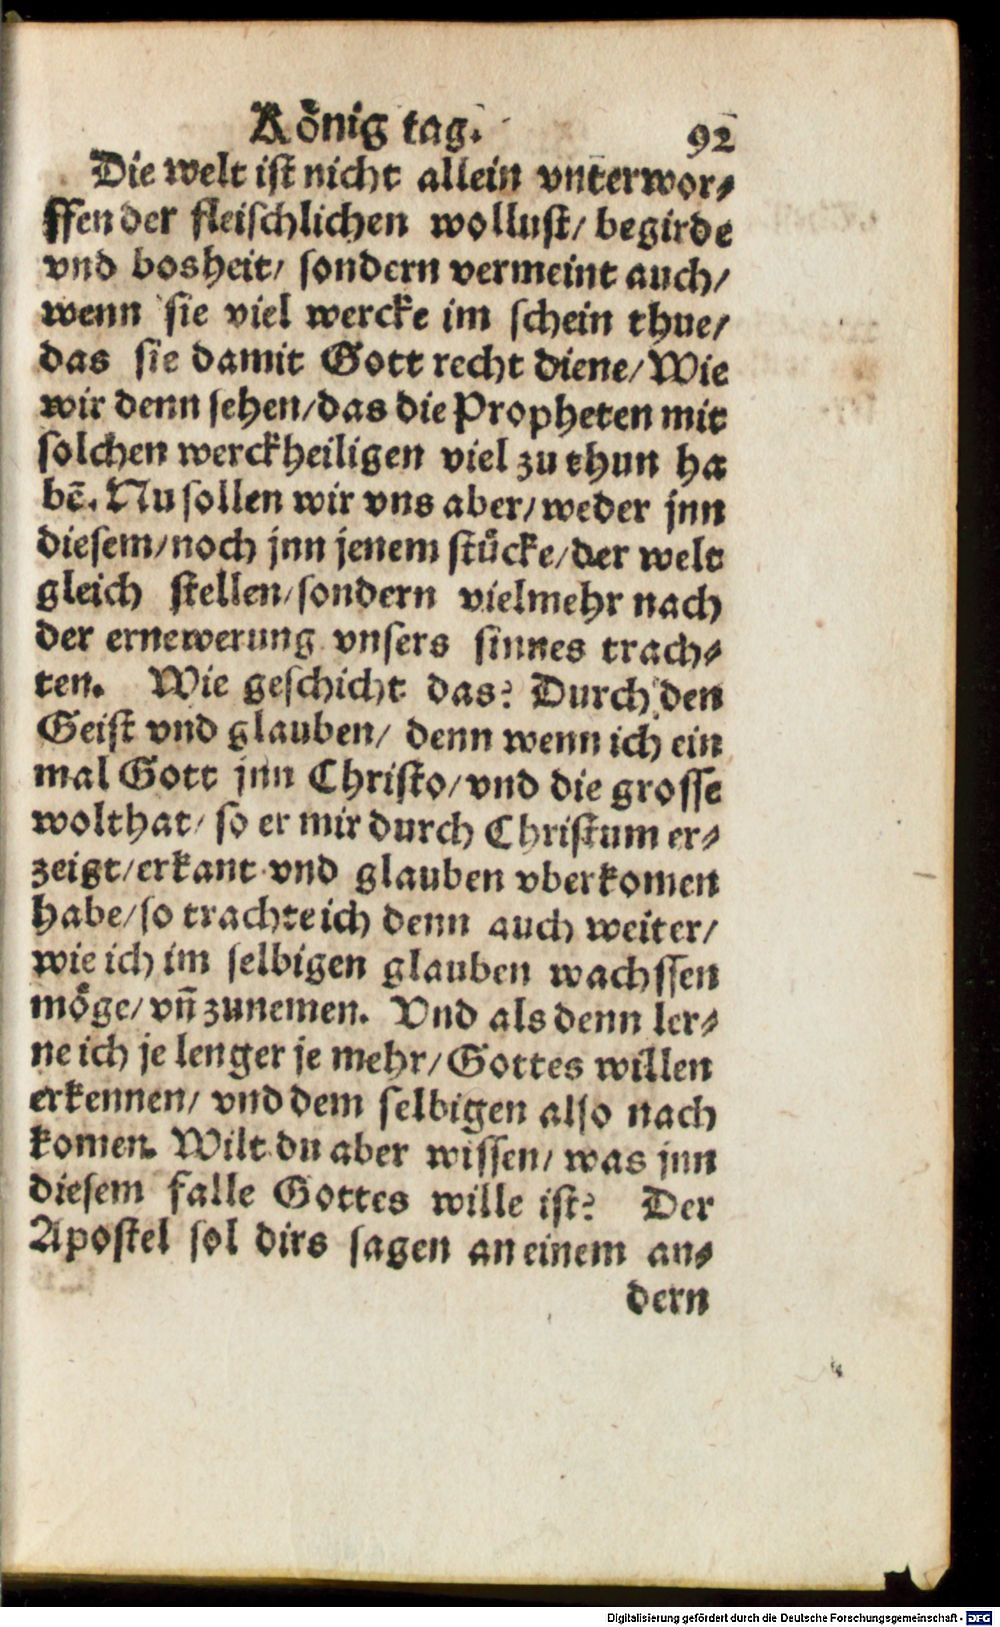 König tag. 92
Die welt ist nicht allein vnterwor⸗
ffen der fleischlichen wollust/ begirde
vnd bosheit/ sondern vermeint auch/
wenn sie viel wercke im schein thue/
das sie damit Gott recht diene/ Wie
wir denn sehen/ das die Propheten mit
solchen werckheiligen viel zu thun ha
bē. Nu sollen wir vns aber/ weder jnn
diesem/ noch jnn jenem stücke/ der welt
gleich stellen/ sondern vielmehr nach
der ernewerung vnsers sinnes trach⸗
ten. Wie geschicht das? Durch den
Geist vnd glauben/ denn wenn ich ein
mal Gott jnn Christo/ vnd die grosse
wolthat/ so er mir durch Christum er⸗
zeigt/ erkant vnd glauben vberkomen
habe/ so trachte ich denn auch weiter/
wie ich im selbigen glauben wachssen
möge/ vn̄ zunemen. Vnd als denn ler⸗
ne ich je lenger je mehr/ Gottes willen
erkennen/ vnd dem selbigen also nach
komen. Wilt du aber wissen/ was jnn
diesem falle Gottes wille ist? Der
Apostel sol dirs sagen an einem an⸗
dern
Digitalisierung gefördert durch die Deutsche Forschungsgemeinschaft - DFG